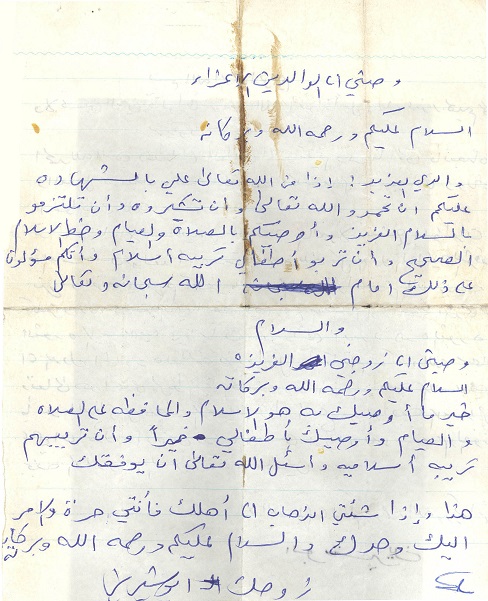 وصتي الى الوالدين الاعزاء
السلام عليكم ورحمه الله وبركاته
والدي لعزيز ! إذا من الله تعالى علي بالشهاده
عليكم ان تحمدو الله تعالى وان تشكروه وأن تلتزمو
بالاسلام العزيز وأوصيكم بالصلاة ولصيام وخط الاسلام
الصحيح وان تربو أطفالي تربيه اسلام وأنكم مسؤولون
على ذلك امام الله سبحانه وتعالى
والسلام
وصتي الى زوجتي العزيزه
السلام عليكم ورحمه الله وبركاته
خير ما أوصيك به هو لاسلام والمحافظه على الصلاه
والصيام وأوصيك بأطفالي خيراً وأن تربيهم
تربيه أسلاميه واسئل الله تعالى أن يوفقك
هذا وإذا شئتي الذهاب الى أهلك فأنتي حرة ولامر
اليك وحدك والسلام عليكم ورحمه الله وبركاته
زوجك